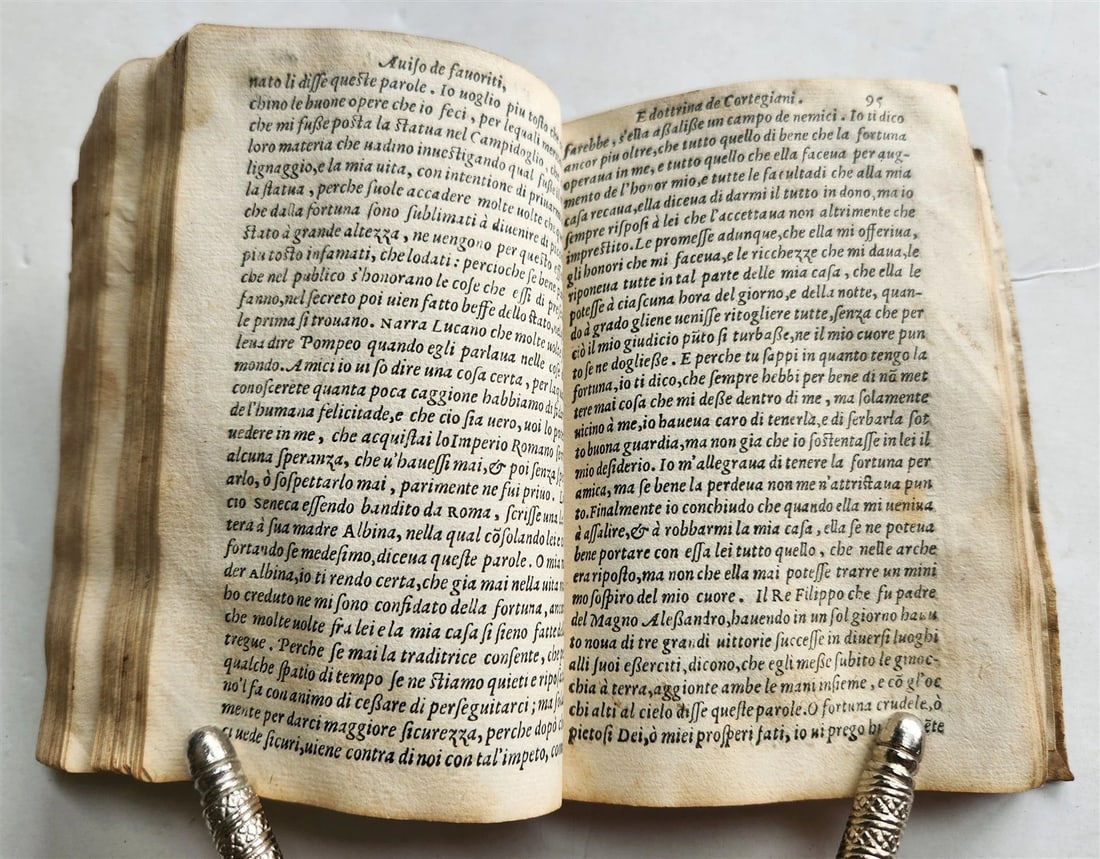 Auiſo de fauoriti,
nato li diſſe queſte parole. Io uoglio piu toſto che
chino le buone opere che io feci, per lequali
che mi fuße poſta la ſtatua nel Campidoglio, che
loro materia che uadino inueſtigando qual fuße
lignaggio, e la mia uita, con intentione di priuarm
la ſtatua, perche ſuole accadere molte uolte che
che dalla fortuna ſono ſublimati à diuenire di
ſtato à grande altezza, ne uengono per queſto
piu toſto infamati, che lodati: percioche ſe bene
che nel publico s'honorano le coſe che eſſi di
fanno, nel ſecreto poi uien fatto beffe dello ſtato,
le prima ſi trouano. Narra Lucano che molte uolte
leua dire Pompeo quando egli parlaua nelle coſe
mondo. Amici io ui ſo dire una coſa certa, per la
conoſcerete quanta poca caggione habbiamo di
de l'humana felicitade, e che cio ſia uero, uoi lo
uedere in me, che acquiſtai lo Imperio Romano
alcuna ſperanza, che u'haueſſi mai, & poi ſenza
arlo, ò ſoſpettarlo mai, parimente ne fui priuo.
cio Seneca eſſendo bandito da Roma, ſcriſſe una
tera à ſua madre Albina, nella qual cõſolando lei e
fortando ſe medeſimo, diceua queſte parole. O mia
der Albina, io ti rendo certa, che gia mai nella uita
ho creduto ne mi ſono confidato della fortuna,
che molte uolte fra lei e la mia caſa ſi ſieno fatte
tregue. Perche ſe mai la traditrice conſente, che
qualche ſpatio di tempo ſe ne ſtiamo quieti e
no'l fa con animo di ceßare di perſeguitarci; ma
mente per darci maggiore ſicurezza, perche dopò
ci uede ſicuri, uiene contra di noi con tal'impeto,
E dottrina de Cortegiani. 95
ſarebbe, s'ella aßaliße un campo de nemici. Io ti dico
ancor piu oltre, che tutto quello di bene che la fortuna
operaua in me, e tutto quello che ella faceua per aug-
mento de l'honor mio, e tutte le facultadi che alla mia
caſa recaua, ella diceua di darmi il tutto in dono, ma io
ſempre riſpoſi à lei che l'accettaua non altrimente che
impreſtito. Le promeſſe adunque, che ella mi offeriua,
gli honori che mi faceua, e le ricchezze che mi daua, le
riponeua tutte in tal parte delle mia caſa, che ella le
poteſſe à ciaſcuna hora del giorno, e della notte, quan-
do à grado gliene ueniſſe ritogliere tutte, ſenza che per
ciò il mio giudicio pũto ſi turbaſſe, ne il mio cuore pun
to ſe ne dogließe. E perche tu ſappi in quanto tengo la
fortuna, io ti dico, che ſempre hebbi per bene di nã met
tere mai coſa che mi deße dentro di me, ma ſolamente
uicino à me, io haueua caro di tenerla, e di ſerbarla ſot
to buona guardia, ma non gia che io ſoſtentaſſe in lei il
mio deſiderio. Io m'allegraua di tenere la fortuna per
amica, ma ſe bene la perdeua non me n'attriſtaua pun
to. Finalmente io conchiudo che quando ella mi ueniua
à aſſalire, & à robbarmi la mia caſa, ella ſe ne poteua
bene portare con eſſa lei tutto quello, che nelle arche
era ripoſto, ma non che ella mai poteſſe trarre un mini
mo ſoſpiro del mio cuore. Il Re Filippo che fu padre
del Magno Aleßandro, hauendo in un ſol giorno hauu
to noua di tre grandi uittorie ſucceſſe in diuerſi luoghi
alli ſuoi eßerciti, dicono, che egli meße ſubito le ginoc-
chia à terra, aggionte ambe le mani inſieme, e cõ gl'oc
chi alti al cielo diſſe queſte parole. O fortuna crudele, ò
pietoſi Dei, ò miei proſperi fati, io ui prego